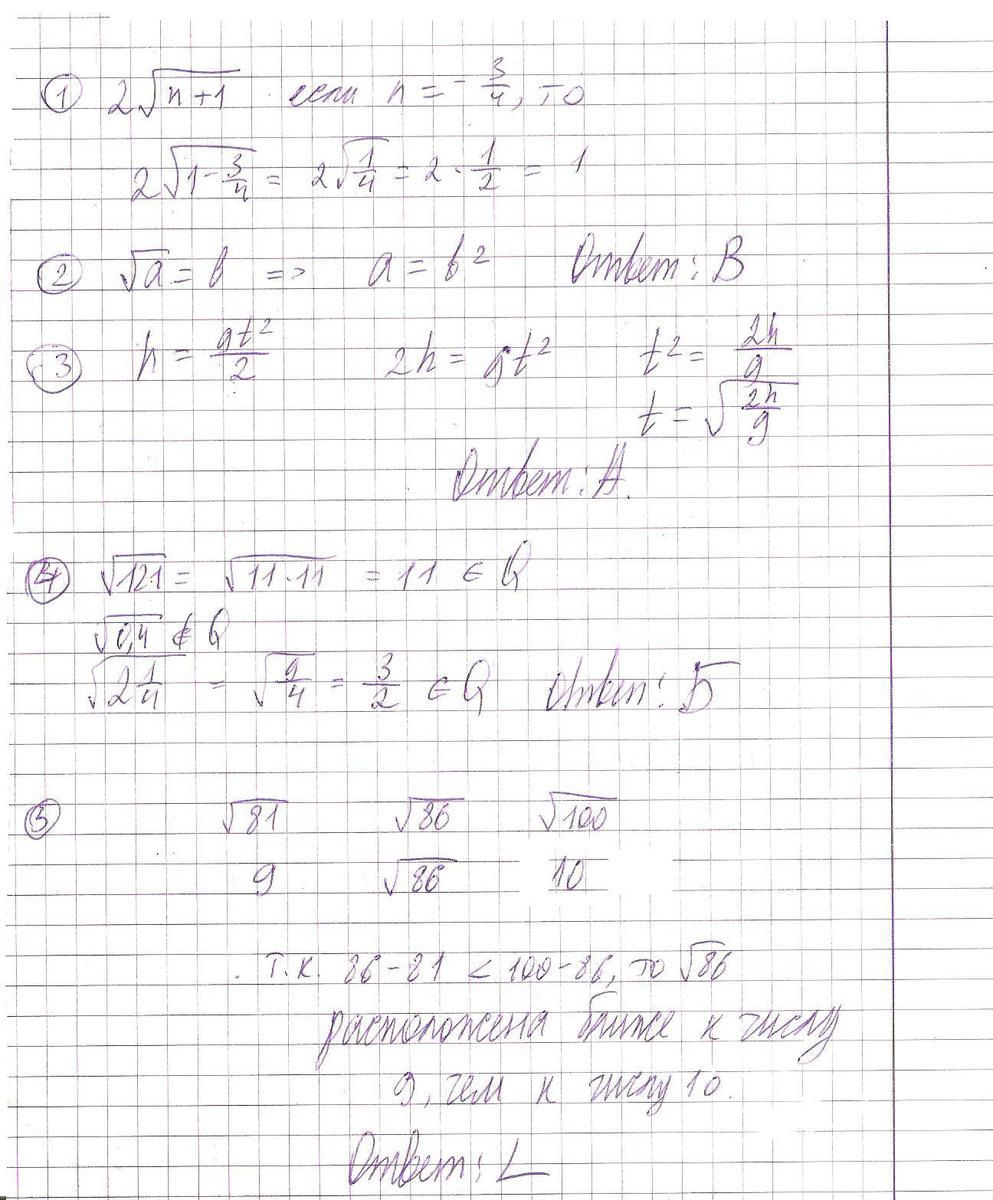 ① 2√(n+1) если n = -3/4, то
2√(1-3/4) = 2√(1/4) = 2·1/2 = 1
② √a = b => a = b² Ответ: В
③ h = gt²/2 2h = gt² t² = 2h/g
t = √(2h/g)
Ответ: А.
④ √121 = √(11·11) = 11 ∈ Q
√0,4 ∉ Q
√(2 1/4) = √(9/4) = 3/2 ∈ Q Ответ: Б
⑤ √81 √86 √100
9 √86 10
т.к. 86-81 < 100-86, то √86
расположена ближе к числу
9, чем к числу 10.
Ответ: L